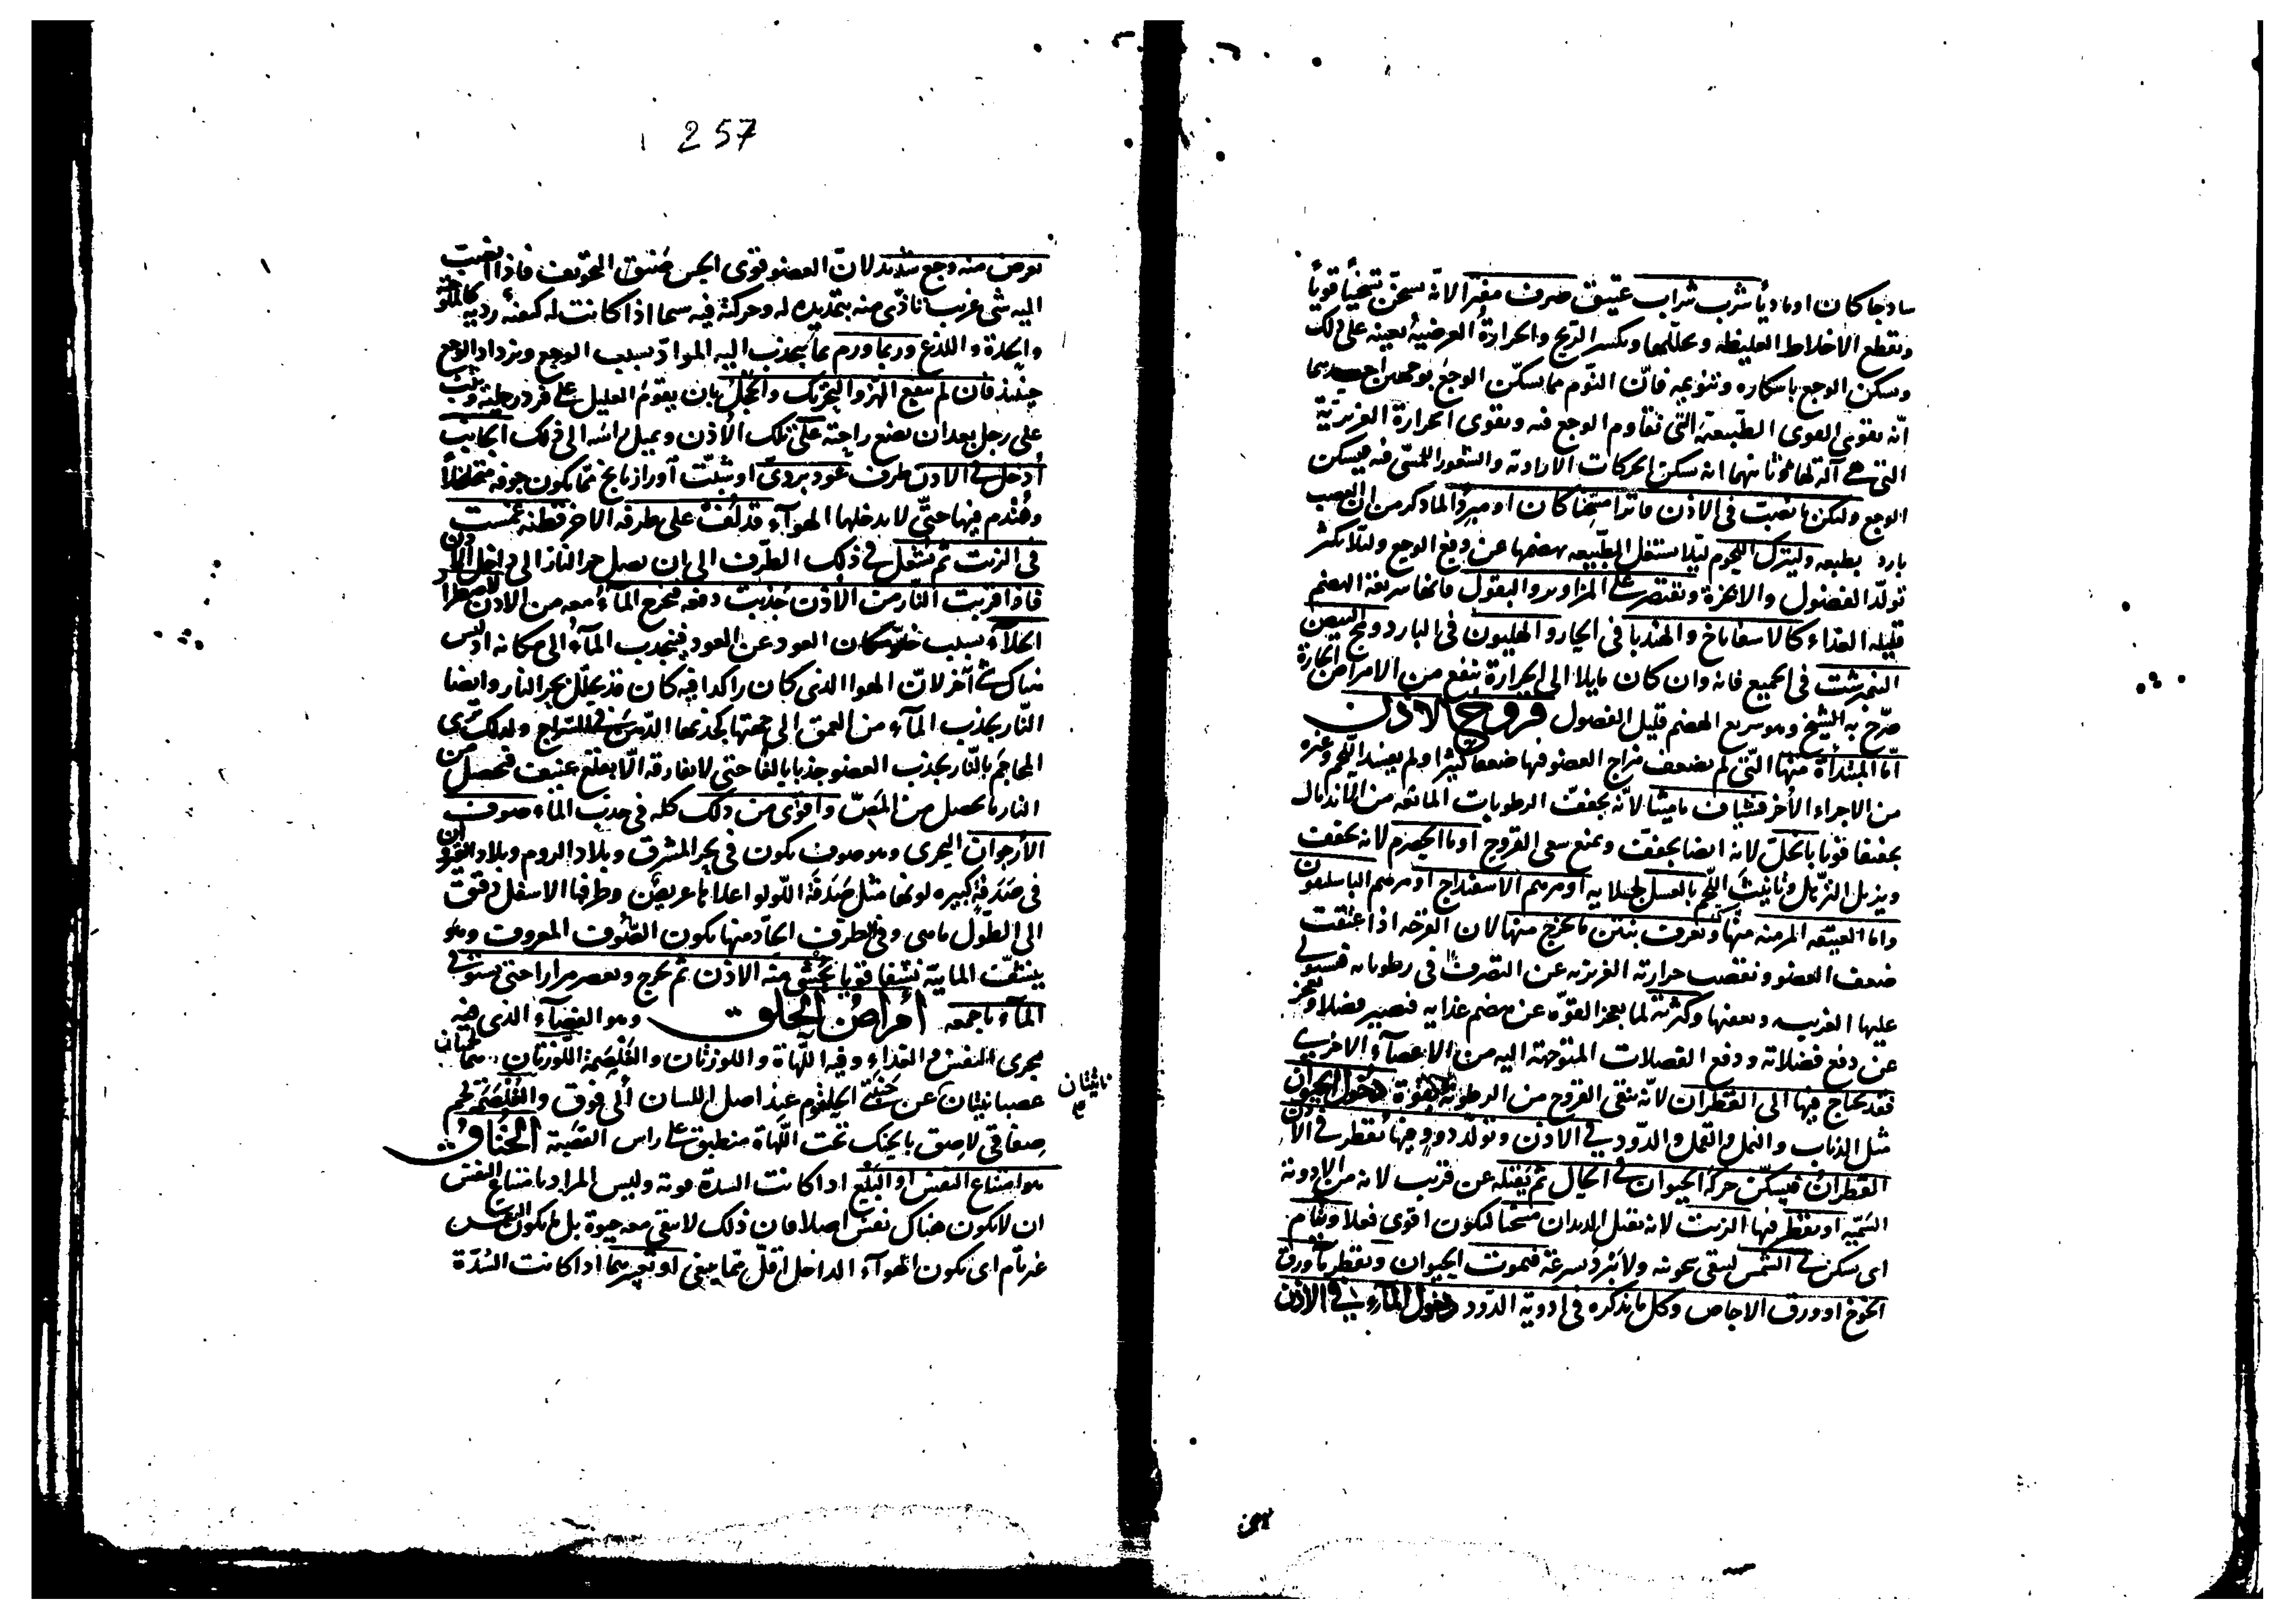 ساذجا كان او ماديا شرب شراب عتيق صرف مفترا لانه يسخن تسخينا قويا
ويقطع الاخلاط الغليظه ويحللها ويكسر الريح والحرارة العرضية يعينه على ذلك
ويسكن الوجع باسكاره وتنويمه فان النوم مما يسكن الوجع بوجهين احدهما
انه يقوى القوى الطبيعية التى تقاوم الوجع فيه ويقوى الحرارة الغريزية
التى هى آلة لها وثانيهما انه يسكن الحركات الارادية والشعور اللمسى فيه فيسكن
الوجع وليكن ما يصب فى الاذن فاترا مسخنا كان او مبردا لما ذكر من ان العصب
بارد بطبعه وليترك اللحوم ليلا يشتغل الطبيعه بهضمها عن دفع الوجع وليلا يكثر
تولد الفضول والابخرة ويقتصر على المزاوير والبقول فانها سريعة الهضم
قليله الغذاء كالاسفاناخ والهندبا فى الحار والهليون فى البارد ومح البيض
النيمرشت فى الجميع فانه وان كان مايلا الى الحرارة ينفع من الامراض الحارة
صرح به الشيخ وهو سريع الهضم قليل الفضول قروح الاذن
اما المبتدأة منها التى لم يضعف مزاج العضو فيها ضعفا كثيرا ولم يفسد اللحم وغيره
من الاجزاء الأخر فشياف ماميثا لانه يجفف الرطوبات المانعه من الاندمال
تجفيفا قويا بالخل لانه ايضا يجفف ويمنع سعى القروح او ما الحصرم لانه يجفف
ويزيل الترهل وتانيث اللحم بالعسل لجلايه او مرهم الاسفيداج او مرهم الباسليقون
واما العتيقه المزمنه منها وتعرف بنتن ما يخرج منها لان القرحه اذا عتقت
ضعف العضو ونقصت حرارته الغريزيه عن التصرف فى رطوباته فيستولى
عليها الغريبه وتعفنها وكثرته لما يعجز القوة عن هضم غذايه فيصير فضلا ويعجز
عن دفع فضلاته ودفع الفضلات المتوجهة اليه من الاعضاء الاخرى
فقد يحتاج فيها الى القطران لانه ينقى القروح من الرطوبة بقوة دخول الحيوان
مثل الذباب والنمل والقمل والدود فى الاذن وتولد دود فيها يقطر فى الاذن
القطران فيسكن حركة الحيوان فى الحال ثم يقتله عن قريب لانه من الادوية
السمية او يقطر فيها الزيت لانه يقتل الديدان مسخنا ليكون اقوى فعلا وينام
اى يسكن فى الشمس ليبقى سخونته ولا يبرد سرعة فيموت الحيوان ويقطر ماء ورق
الخوخ او ورق الاجاص وكل ما يذكره فى ادوية الدود دخول الماء فى الاذن
257
يعرض منه وجع شديد لان العضو قوى الحس ضيق التجويف فاذا انصب
اليه شى غريب تاذى منه بتمديده له وحركته فيه سيما اذا كانت له كيفية ردية كالملوحة
والحدة واللذع وربما ورم بما يجذب اليه المواد بسبب الوجع ويزداد الوجع
حينئذ فان لم ينفع الهز والتحريك والحجل بان يقوم العليل على فرد رجليه ويثب
على رجل بعد ان يضع راحته على تلك الاذن ويميل راسه الى ذلك الجانب
أدخل فى الاذن طرف عود بردى او شبت او رازيانج مما يكون جوفه متخلخلا
وهندم فيها حتى لا يدخلها الهواء قد لفت على طرفه الاخر قطنه غمست
فى الزيت ثم تشعل فى ذلك الطرف الى ان يصل حر النار الى داخل الاذن
فاذا قربت النار من الاذن جذبت دفعه فيخرج الماء معه من الاذن لاضطرار
الخلاء بسبب خلو مكان العود عن العود فينجذب الماء الى مكانه اذ ليس
هناك شى آخر لان الهوا الذى كان راكدا فيه كان قد تحلل بحر النار وايضا
النار يجذب الماء من العمق الى جهتها كجذبها الدهن فى السراج ولذلك ترى
المحاجم بالنار يجذب العضو جذبا بالغا حتى لا يفارقه الا بقلع عنيف فيحصل من
النار ما يحصل من المص واقوى من ذلك كله فى جذب الماء صوف
الأرجوان البحرى وهو صوف يكون فى بحر المشرق وبلاد الروم وبلاد القيروان
فى صدفة كبيره لونها مثل صدفة اللولو اعلاها عريض وطرفها الاسفل دقيق
الى الطول ماهى وفى الطرف الحاد منها يكون الصوف المعروف وهو
ينشف المايية نشفا قويا يحشى منه الاذن ثم يخرج ويعصر مرارا حتى يستوفى
الماء باجمعه أمراض الحلق وهو الفضاء الذى فيه
مجرى النفس والغذاء وفيه اللهاة واللوزتان والغلصمة اللوزتان هما لحمتان
عصبانيتان ناتئتان عن جنبتى الحلقوم عند اصل اللسان الى فوق والغلصمة لحم
صفاقى لاصق بالحنك تحت اللهاة منطبق على راس القصبة الخناق
هو امتناع النفس او البلع اذا كانت السدة قوية وليس المراد بامتناع النفس
ان لا يكون هناك نفس اصلا فان ذلك لا يبقى معه حيوة بل ان يكون النفس
غير تام اى يكون الهواء الداخل اقل مما ينبغى او تعسرهما اذا كانت السدة